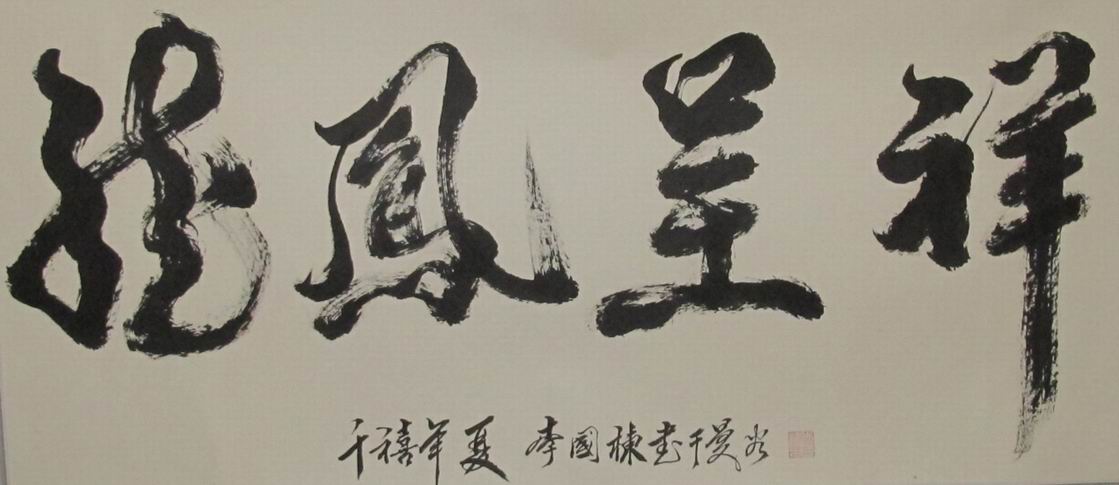 龍鳳呈祥
千禧年夏 李國棟書于曼谷